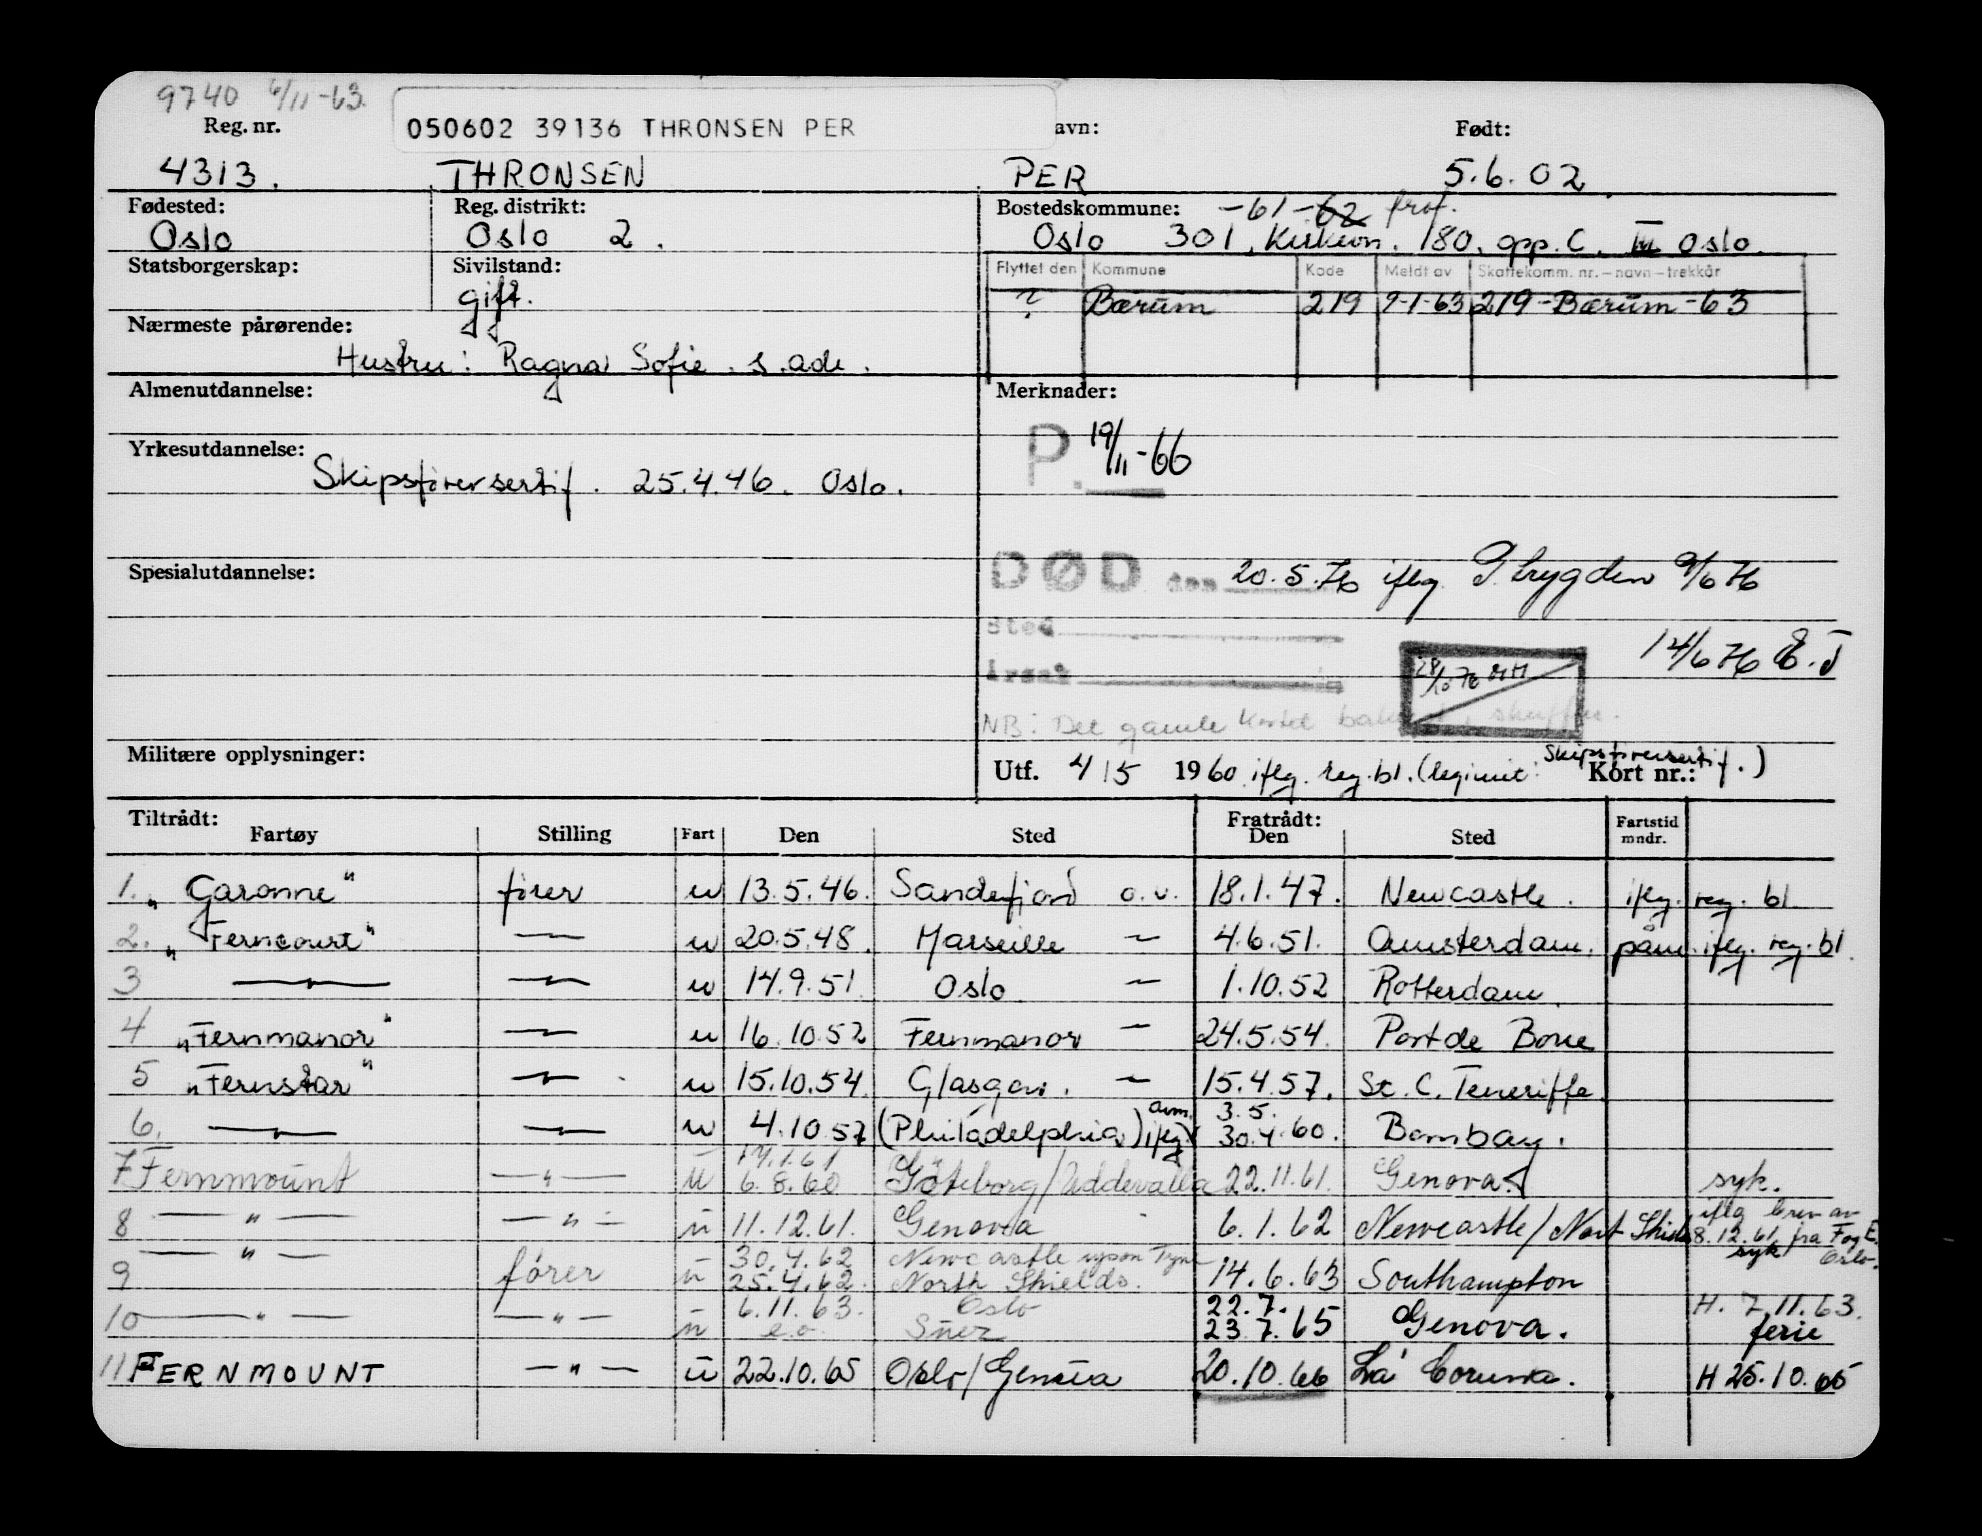 9740 6/11-63.
Reg. nr. 050602 39136 THRONSEN PER avn: Født:
4313. THRONSEN PER 5.6.02.
Fødested: Reg. distrikt: Bostedskommune: -61-62 frof.
Oslo Oslo 2. Oslo 301, Kirkevn. 180, opp. C. III Oslo.
Statsborgerskap: Sivilstand: Flyttet den Kommune Kode Meldt av Skattekomm. nr.-navn-trekkår
gift. ? Bærum 219 9-1-63 219-Bærum-63
Nærmeste pårørende:
Hustru: Ragna Sofie. s. adr.
Almenutdannelse: Merknader:
P. 19/11-66
Yrkesutdannelse:
Skipsførersertif. 25.4.46. Oslo.
Spesialutdannelse:
DØD den 20.5.76 iflg. P.trygden 9/6 76
Sted
14/6 76 E.J
Årsak
28/10 76
NB: Det gamle kortet skuffen.
Militære opplysninger:
Utf. 4/5 1960 iflg. reg.bl. (legimit: Skipsførersertif.) Kort nr.:
Tiltrådt: Fratrådt:
Fartøy Stilling Fart Den Sted Den Sted Fartstid mndr.
1. "Garonne" fører u 13.5.46. Sandefjord o.v. 18.1.47. Newcastle. iflg. reg. bl.
2. "Ferncourt" — u 20.5.48. Marseille — 4.6.51. Amsterdam. påm. iflg. reg. bl.
3 —"— — u 14.9.51 Oslo — 1.10.52 Rotterdam.
4 "Fernmanor" — u 16.10.52 Fernmanor — 24.5.54. Port de Boue
5 "Fernstar" — u 15.10.54 Glasgow. — 15.4.57. St. C. Teneriffe.
6. —"— — u 4.10.57 (Philadelphia) iflg. avm. 3.5. 30.4.60. Bombay.
7 Fernmount —"— u 14.1.61 6.8.60 Göteborg/Uddevalla 22.11.61. Genova syk.
8 —"— —"— u 11.12.61. Genova 6.1.62 Newcastle/Nort Shields iflg brev av 8.12.61. fra Fog E. Oslo. syk
9 —"— fører u 30.4.62 25.4.62. Newcastle upon Tyne North Shields. 14.6.63 Southampton
10 —"— —"— u 6.11.63. e.o. Oslo Suez 22.7. 23.7.65 Genova. H. 7.11.63. ferie
11 FERNMOUNT —"— u 22.10.65 Oslo/Genova 20.10.66 La Coruna. H 25.10.65